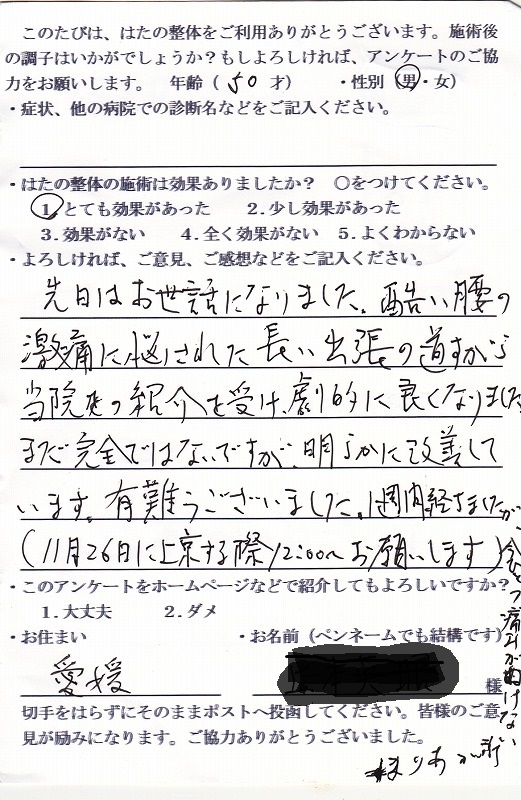 このたびは、はたの整体をご利用ありがとうございます。施術後
の調子はいかがでしょうか？もしよろしければ、アンケートのご協
力をお願いします。 年齢（ 50 才） ・性別（男・女）
・症状、他の病院での診断名などをご記入ください。
・はたの整体の施術は効果ありましたか？ ○をつけてください。
1.とても効果があった 2.少し効果があった
3.効果がない 4.全く効果がない 5.よくわからない
・よろしければ、ご意見、ご感想などをご記入ください。
先日はお世話になりました。酷い腰の
激痛に悩された長い出張の道すがら
当院の紹介を受け、劇的に良くなりました
まだ完全ではないですが、明らかに改善して
います。有難うございました。1週間経ちましたが、
(11月26日に上京する際12:00〜お願いします)
痛みが抜けない
・このアンケートをホームページなどで紹介してもよろしいですか？
1.大丈夫 2.ダメ
・お住まい ・お名前（ペンネームでも結構です）
愛媛 様
切手をはらずにそのままポストへ投函してください。皆様のご意
見が励みになります。ご協力ありがとうございました。